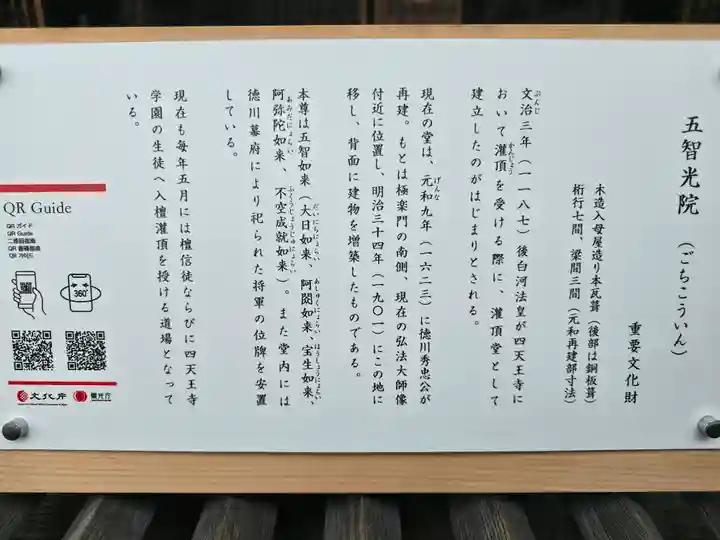 五智光院（ごちこういん）
重要文化財
木造入母屋造り本瓦葺（後部は銅板葺）
桁行七間、梁間三間（元和再建部寸法）
文治三年（一一八七）後白河法皇が四天王寺に
ぶんじ
おいて灌頂を受ける際に、灌頂堂として
かんじょう
建立したのがはじまりとされる。
現在の堂は、元和九年（一六二三）に徳川秀忠公が
げんな
再建。もとは極楽門の南側、現在の弘法大師像
付近に位置し、明治三十四年（一九〇一）にこの地に
移し、背面に建物を増築したものである。
本尊は五智如来（大日如来、阿閦如来、宝生如来、
だいにちにょらい
あしゅくにょらい
ほうしょうにょらい
阿弥陀如来、不空成就如来）。また堂内には
あみだにょらい
ふくうじょうじゅにょらい
徳川幕府により祀られた将軍の位牌を安置
している。
現在も毎年五月には檀信徒ならびに四天王寺
学園の生徒へ入壇灌頂を授ける道場となって
いる。
QR Guide
QR ガイド
QR Guide
QR 가이드
360°
文化庁
観光庁